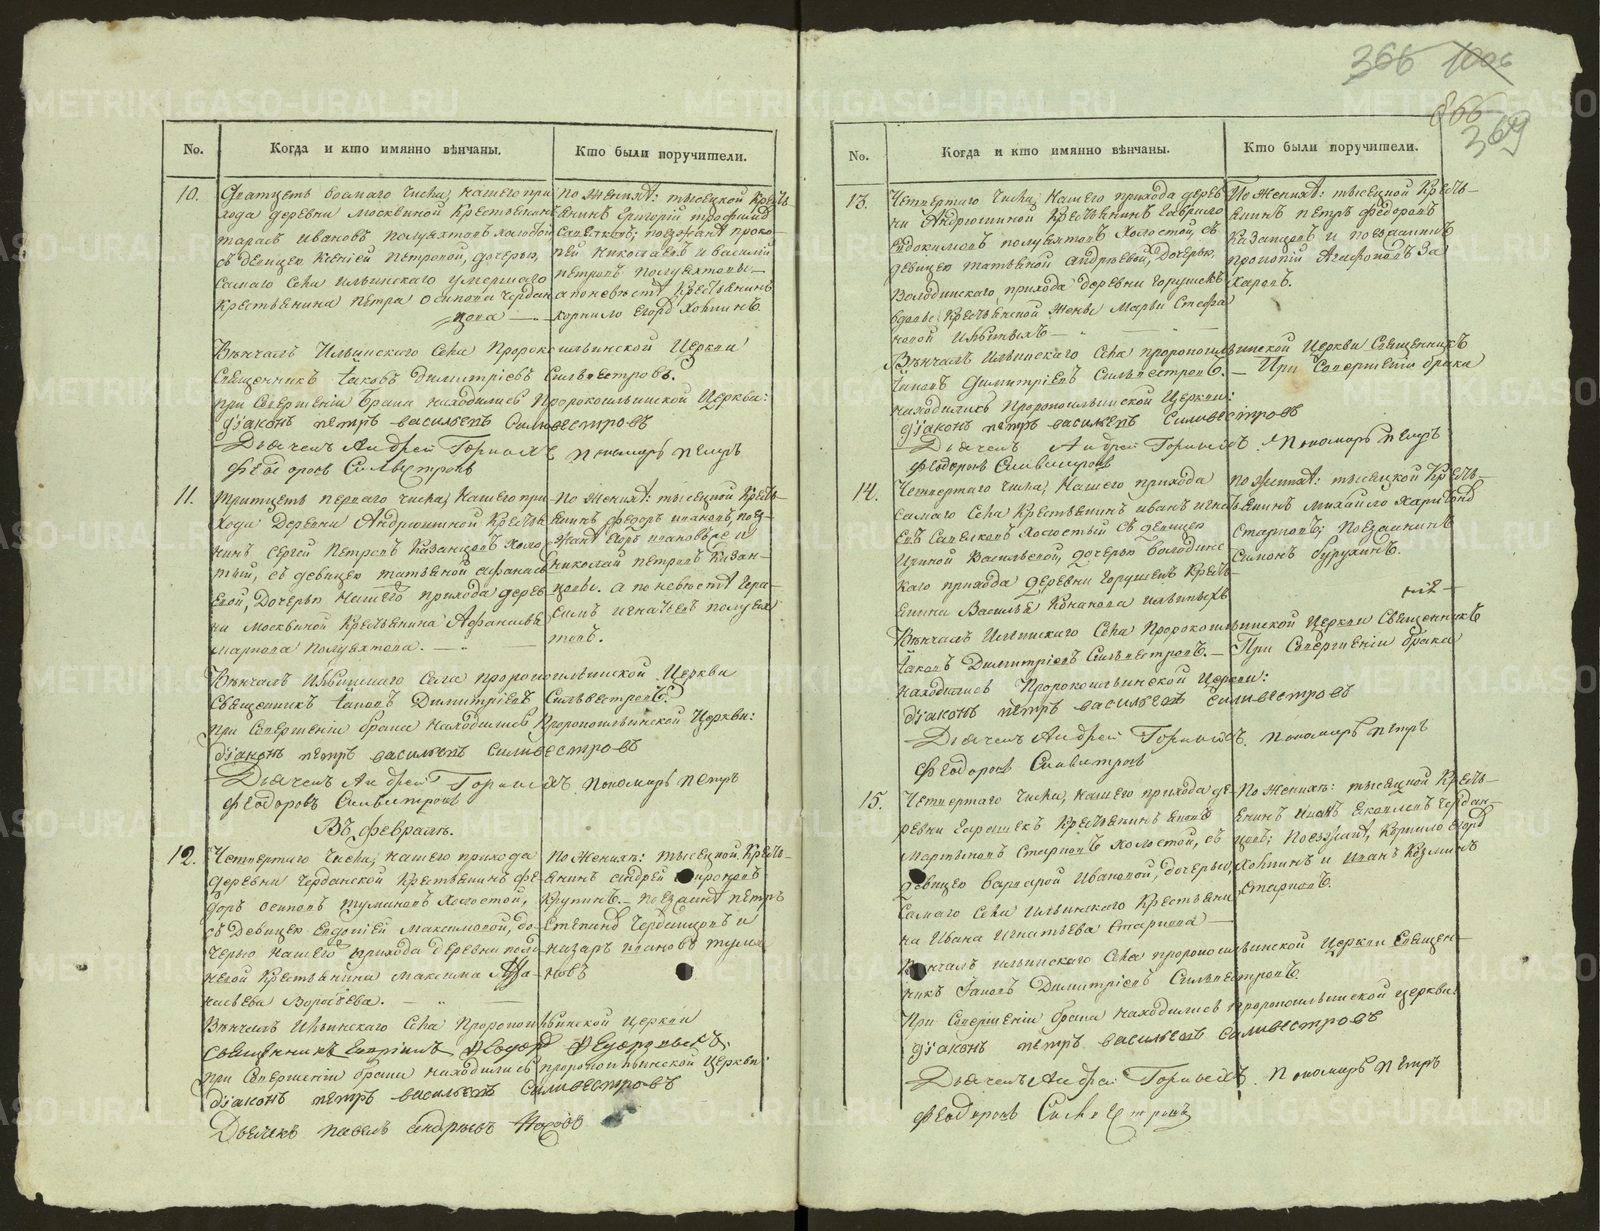 366 1006
866
369
No. Когда и кто имянно вѣнчаны. Кто были поручители.
10. Дватцеть восмаго числа, нашего при
хода деревни Москвиной Крестьянинъ
Тарасъ Ивановъ Полуяхтовъ холостой
съ девицею Ксеніей Петровой, дочерью,
самаго села Ильинскаго умершаго
крестьянина Петра Осипова Чердан
цова
По женихѣ: тысецкой Кресть-
янинъ Григорій Трофимов
поезжанѣ Проко-
пей Николаевъ и Василій
Петровъ Полуяхтовы.—
а по невѣстѣ Крестьянинъ
Корнило Егоров Хопинъ.
Вѣнчалъ Ильинскаго села Пророкоильинской Церкви
Священникъ Іаковъ Димитріевъ Сильвестровъ.
при совершеніи брака находились Пророкоильинской Церкви:
діаконъ петръ васильевъ Силивестровъ
Дьячекъ Андрей Горныхъ пономарь петръ
Феодоровъ Силвестровъ
11. Тритцеть перваго числа, нашего при
хода деревни Андрюшиной Крестья
нинъ Сергей Петровъ Казанцовъ холо
тый, съ девицею Татьяной Афанась
евой, дочерью нашего прихода дерев
ни Москвиной Крестьянина Афанасья
Маркова Полуяхтова.—
По женихѣ: тысецкой Кресть-
янинъ Федоръ Ивановъ, поез-
жанѣ Егоръ Ивановъ и
Николай Петровъ Казан-
цовы. а по невѣстѣ Гера-
симъ Игнатьев Полуях
товъ.
Вѣнчалъ Ильинскаго села пророкоильинской Церкви
Священникъ Іаковъ Димитріевъ Сильвестровъ.
при совершеніи брака находились Пророкоильинской Церкви:
діаконъ петръ васильевъ Силивестровъ
Дьячекъ Андрей Горныхъ. пономарь петръ
Феодоровъ Силвестровъ
Въ февралѣ.
12. Четвертаго числа, нашего прихода
деревни Черданской Крестьянинъ Фе-
доръ Осиповъ Тумановъ холостой,
съ девицею Евдокіей Максимовой, до-
черью нашего прихода деревни
Крестьянина Максима Афа-
насьева Ворачева.—
По женихѣ: тысецкой Кресть-
янинъ Андрей Мироновъ
Крупинъ.— поезжанѣ Петръ
Степанов Черданцовъ и
Назаръ Ивановъ Тума
новъ
Вѣнчалъ Ильинскаго села Пророкоильинской церкви
Священникъ Феодоръ
при совершеніи брака находились пророкоильинской церкви:
діаконъ петръ васильевъ Силивестровъ
Дьячекъ Павелъ Андреевъ
No. Когда и кто имянно вѣнчаны. Кто были поручители.
13. Четвертаго числа, нашего прихода дерев
ни Андрюшиной Крестьянинъ Гаврило
Евдокимовъ Полуяхтовъ холостой, съ
девицею Татьяной Андреевой, дочерью,
Володинскаго прихода деревни Горушекъ
вдовы Крестьянской жены Марьи Стефа
новой Ильиныхъ—
По женихѣ: тысецкой Кресть-
янинъ Петръ Федоровъ
Казанцовъ и поезжанинъ
Прокопій Агафоновъ За
харовъ.
Вѣнчалъ Ильинскаго села пророкоильинской Церкви Священникъ
Іаковъ Димитріевъ Сильвестровъ.— При совершеніи брака
находились Пророкоильинской Церкви:
діаконъ петръ васильевъ Силивестровъ
Дьячекъ Андрей Горныхъ. пономарь петръ
Феодоровъ Силвестровъ
14. Четвертаго числа, нашего прихода
самаго села Крестьянинъ Иванъ Игнать
евъ холостый съ девицею
Ириной Васильевой, дочерью Володинс
каго прихода деревни Горушекъ Кресть-
янина Василья Кононова Ильиныхъ
По женихѣ: тысецкой Кресть-
янинъ Михайло Харитонов
Старковъ; поезжанинъ
Симонъ Бурухинъ.
Вѣнчалъ Ильинскаго села Пророкоильинской Церкви Священникъ
Іаковъ Димитріевъ Сильвестровъ.— При совершеніи брака
находились Пророкоильинской Церкви:
діаконъ петръ васильевъ Силивестровъ
Дьячекъ Андрей Горныхъ. пономарь петръ
Феодоровъ Силвестровъ
15. Четвертаго числа, нашего прихода де-
ревни Горушекъ Крестьянинъ
Мартыновъ Старковъ холостой, съ
девицею Варварой Ивановой, дочерью,
самаго села Ильинскаго Крестьяни
на Ивана Игнатьева Старкова—
По женихѣ: тысецкой Кресть-
янинъ Яковлевъ Чердан-
цовъ; поезжанѣ, Корнило Егоров
Хопинъ и Иванъ Козминъ
Старковъ.
Вѣнчалъ Ильинскаго села пророкоильинской Церкви Священ-
никъ Іаковъ Димитріевъ Сильвестровъ.
При совершеніи брака находились пророкоильинской церкви:
діаконъ петръ васильевъ Силивестровъ
Дьячекъ Андрей Горныхъ. пономарь петръ
Феодоровъ Силвестровъ